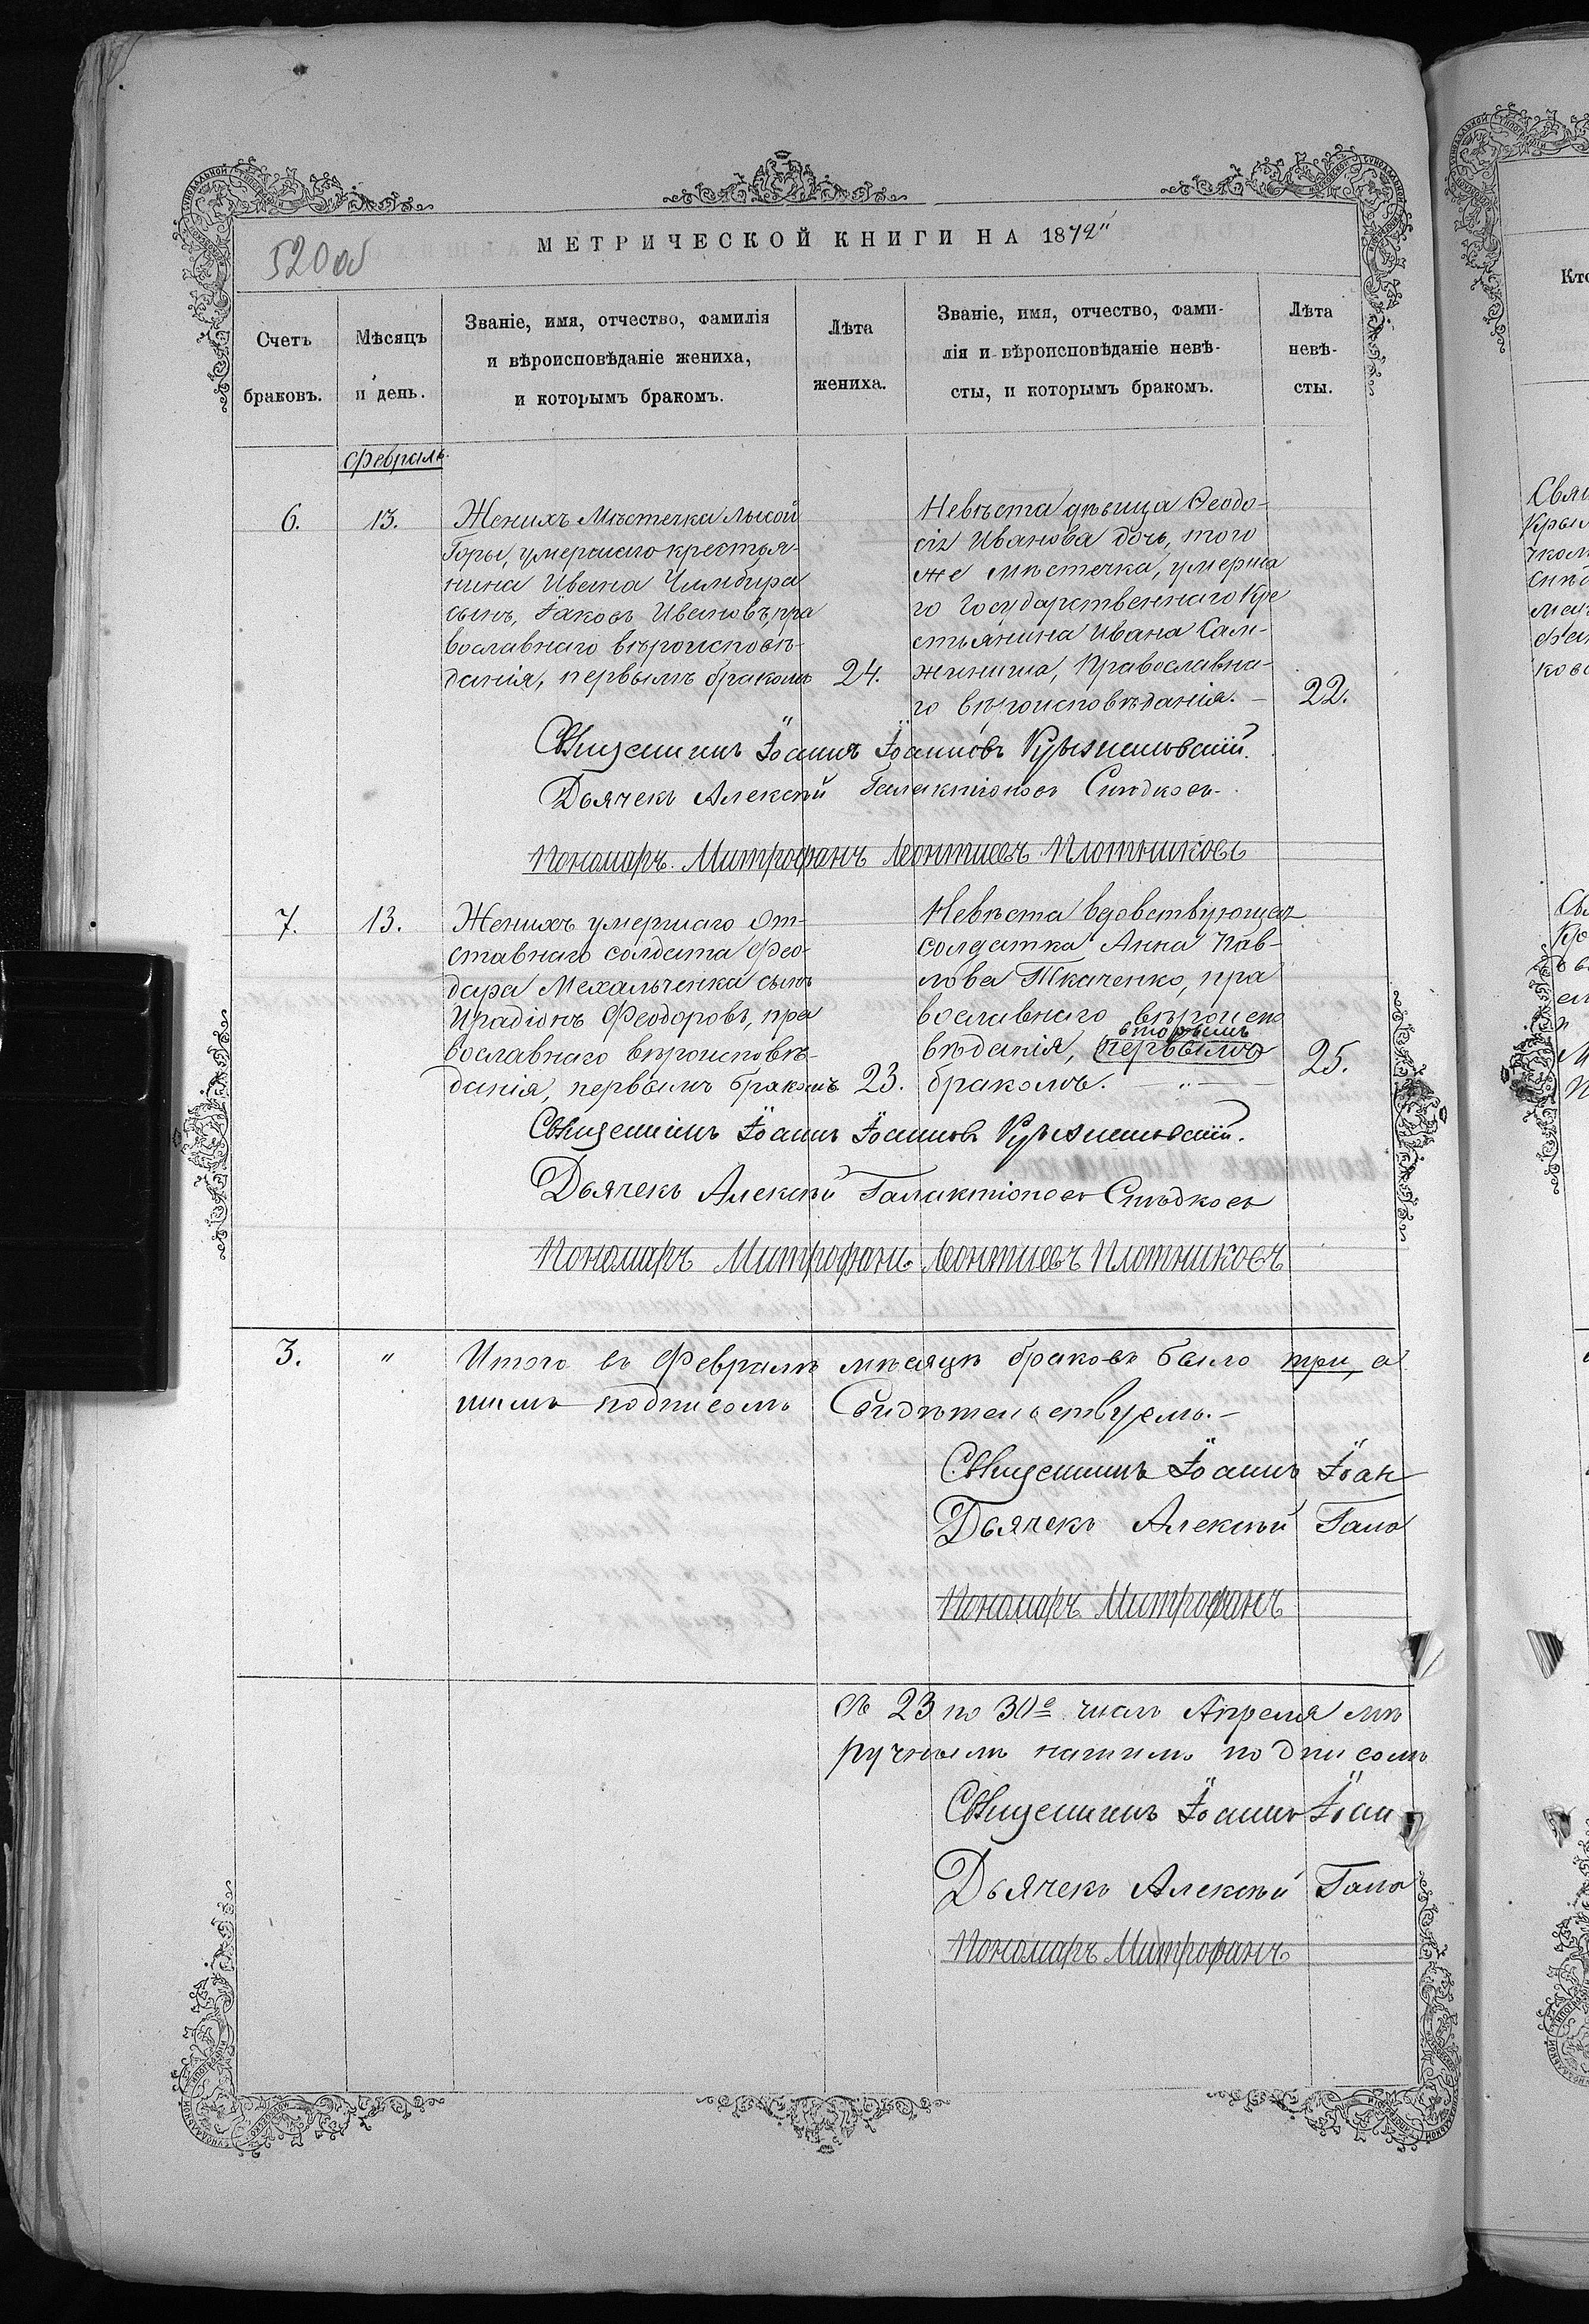 520 об
МЕТРИЧЕСКОЙ КНИГИ НА 1872"
Счетъ
браковъ.
Мѣсяцъ
и день.
Званіе, имя, отчество, фамилія
и вѣроисповѣданіе жениха,
и которымъ бракомъ.
Лѣта
жениха.
Званіе, имя, отчество, фами-
лія и вѣроисповѣданіе невѣ-
сты, и которымъ бракомъ.
Лѣта
невѣ-
сты.
Февраль.
6.
13.
Женихъ Мѣстечка Лысой
Горы, умершаго крестья-
нина Ивана Чимбира
сынъ, Іаковъ Ивановъ, пра
вославнаго вѣроисповѣ-
данія, первымъ бракомъ
24.
Невѣста дѣвица Ѳеодо-
сія Иванова дочь, того
же мѣстечка, умерша
го Государственнаго Кре
стьянина Ивана
Православна-
го вѣроисповѣданія. –
22.
Священникъ Іоаннъ Іоанновъ
Дьячекъ Алексѣй Галактіоновъ Снѣдковъ.
Пономарь Митрофанъ Леонтиевъ Плотниковъ
7.
13.
Женихъ умершаго От-
ставнаго солдата Фео-
дора Михальченка сынъ
Иродіонъ Феодоровъ, пра
вославнаго вѣроисповѣ-
данія, первымъ бракомъ
23.
Невѣста вдовствующая
солдатка Анна Пав-
лова Ткаченко, пра
вославнаго вѣроиспо
вторымъ
вѣданія, первымъ
бракомъ.
25.
Священникъ Іоаннъ Іоанновъ
Дьячекъ Алексѣй Галактіоновъ Снѣдковъ
Пономарь Митрофанъ Леонтиевъ Плотниковъ
3.
"
Итого въ Февралѣ мѣсяцѣ браковъ было три, а
шимъ подписомъ Свидѣтельствуемъ. –
Священникъ Іоаннъ Іоан
Дьячекъ Алексѣй Гала
Пономарь Митрофанъ
Съ 23 по 30е число Апреля мѣ
ручнымъ нашимъ подписомъ
Священникъ Іоаннъ Іоан
Дьячекъ Алексѣй Гала
Пономарь Митрофанъ